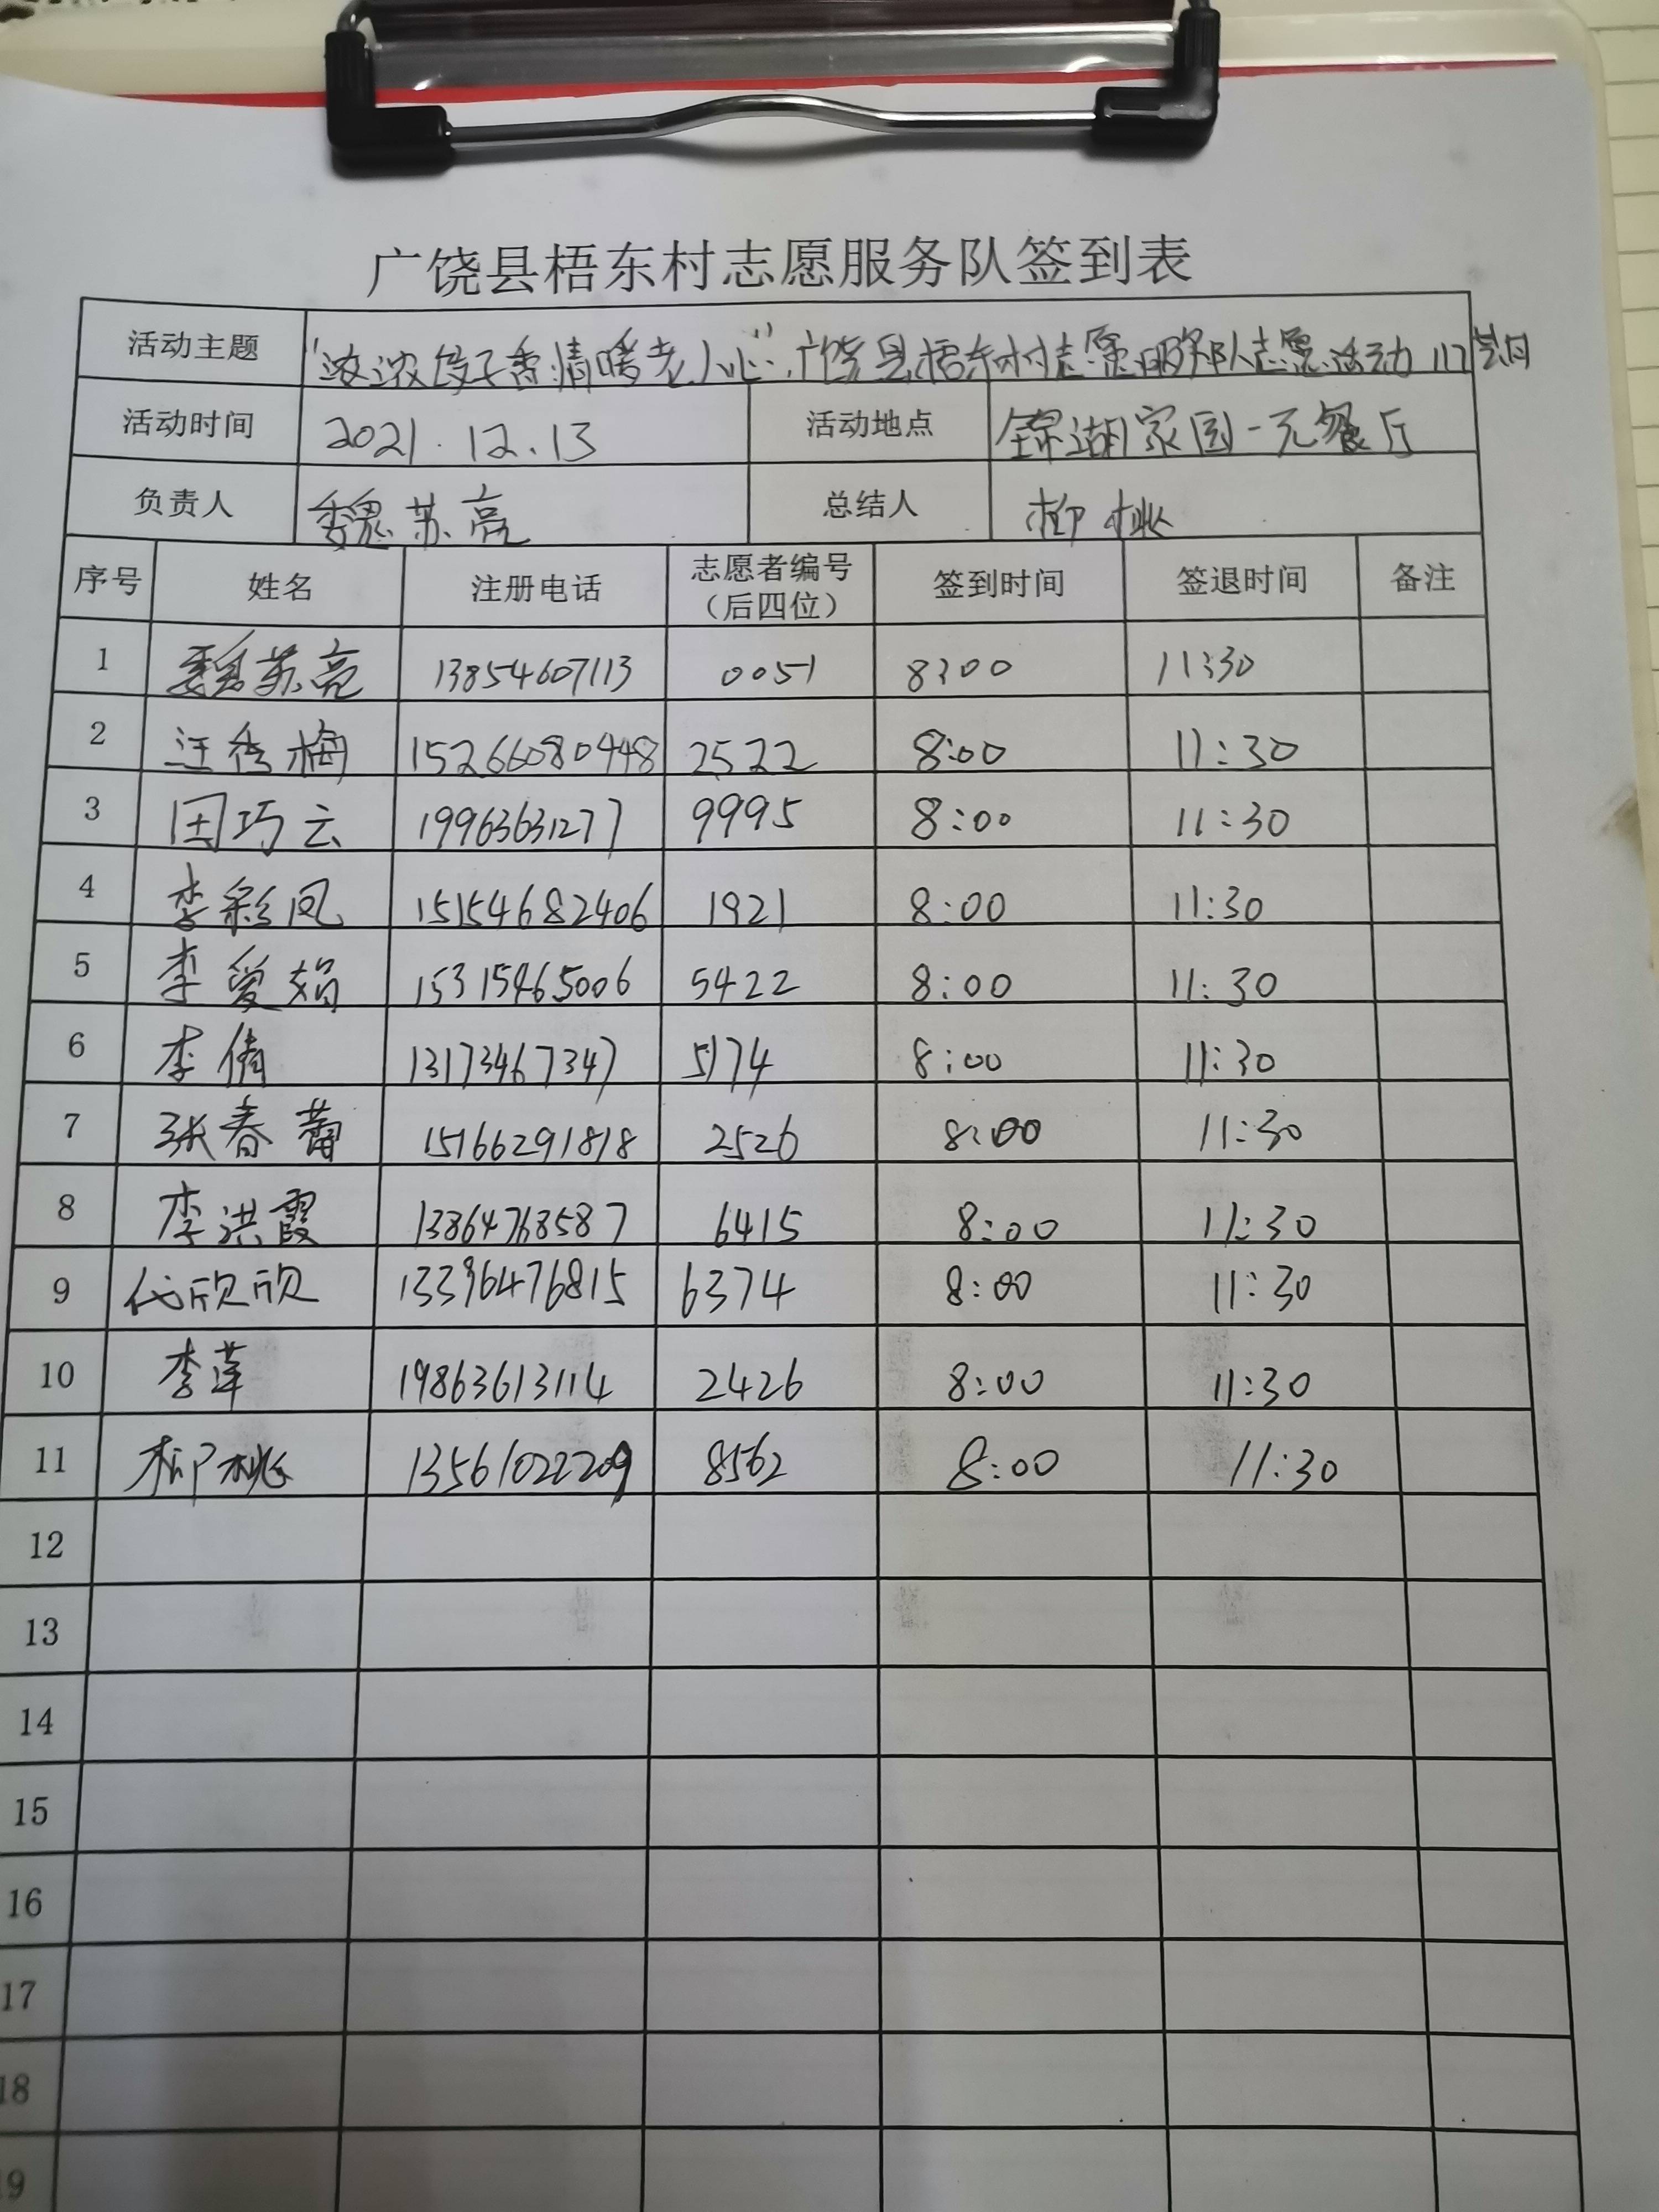 广饶县梧东村志愿服务队签到表
活动主题 "浓浓饺子香,情暖老人心"广饶县梧东村志愿服务队志愿活动117期
活动时间 2021.12.13 活动地点 锦湖家园一元餐厅
负责人 魏苏亮 总结人 柳桃
序号 姓名 注册电话 志愿者编号（后四位） 签到时间 签退时间 备注
1 魏苏亮 13854607113 0051 8:00 11:30
2 汪秀梅 15266080448 2522 8:00 11:30
3 国巧云 19963631277 9995 8:00 11:30
4 李彩凤 15154682406 1921 8:00 11:30
5 李爱娟 15315465006 5422 8:00 11:30
6 李倩 13173467347 5174 8:00 11:30
7 张春蕾 15166291818 2526 8:00 11:30
8 李洪霞 13864768587 6415 8:00 11:30
9 代欣欣 13396476815 6374 8:00 11:30
10 李莲 19863613114 2426 8:00 11:30
11 柳桃 13561022209 8562 8:00 11:30
12
13
14
15
16
17
18
19